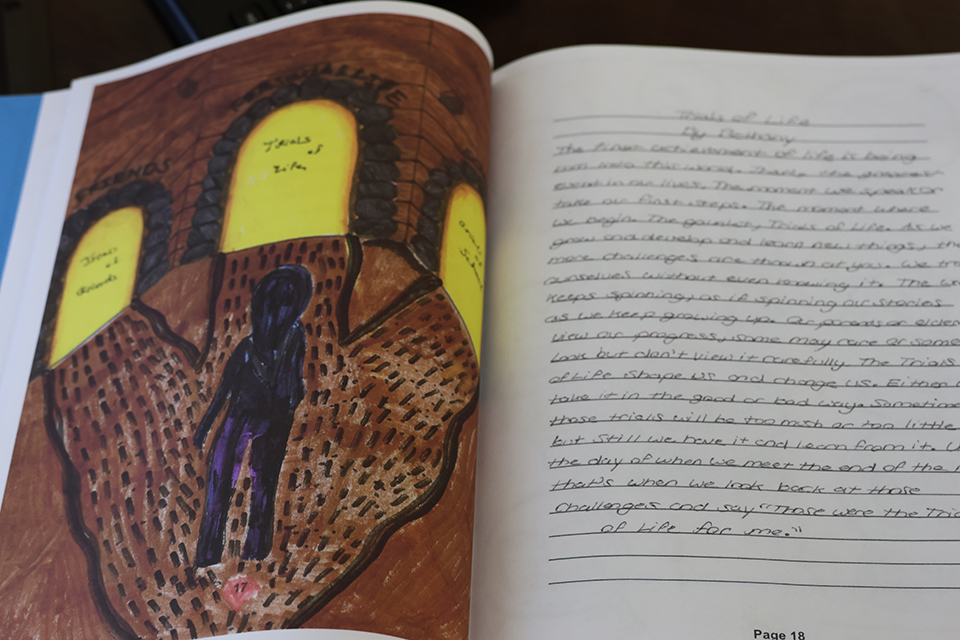 FRIENDS
Trials
of
Friends
Trials
of
Life
17
Trials of Life
By Bethany
The first achievement of life is being
born into this world. Thats the greatest
event in our lives. The moment we speak or
take our first steps. The moment where
we begin. The gauntlet, Trials of Life. As we
grow and develop and learn new things, the
more challenges are thrown at you. We
ourselves without even knowing it. The
keeps spinning, as if spinning our stories
as we keep growing up. Our parents or elder
view our progress, some may care or some
look but don't view it carefully. The Trials
of Life shape us and change us. Either
take it in the good or bad way. Sometime
those trials will be too much or too little
but still we have it and learn from it.
the day of when we meet the end of the
that's when we look back at those
challenges and say "Those were the
of Life for me."
Page 18